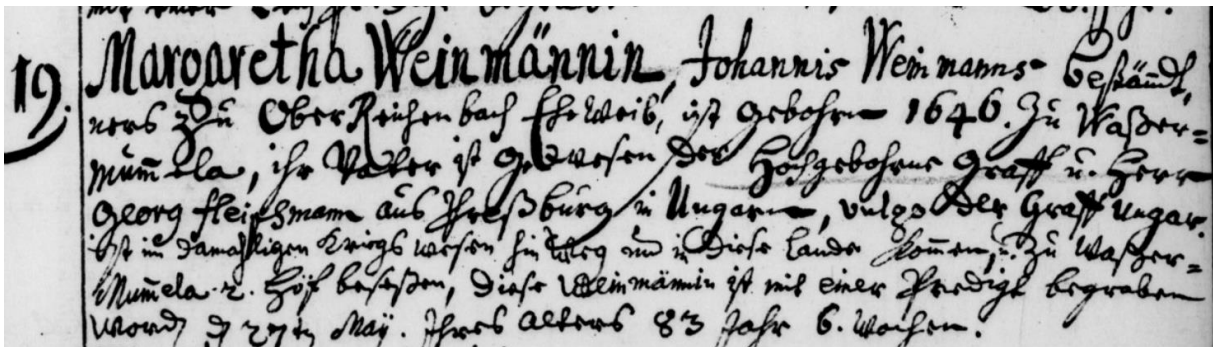 19. Margaretha Weinmännin, Johannis Weinmanns Beständt,
ners zu OberReichenbach Eheweib, ist gebohrn 1646. zu Waßer=
mum̃ela, ihr Vatter ist gewesen der Hochgebohrne Graff u. Herr
Georg Fleischmann aus Preßburg in Ungarn, vulgo der Graff Ungar.
ist im damahligen Kriegs wesen hinweg und in diese Lande kom̃en, u. zu Waßer=
Mum̃ela 2. Höf beseßen, diese Weinmännin ist mit einer Predigt begraben
word, d 27ten Maÿ. Ihres alters 83 Jahr 6. Wochen.